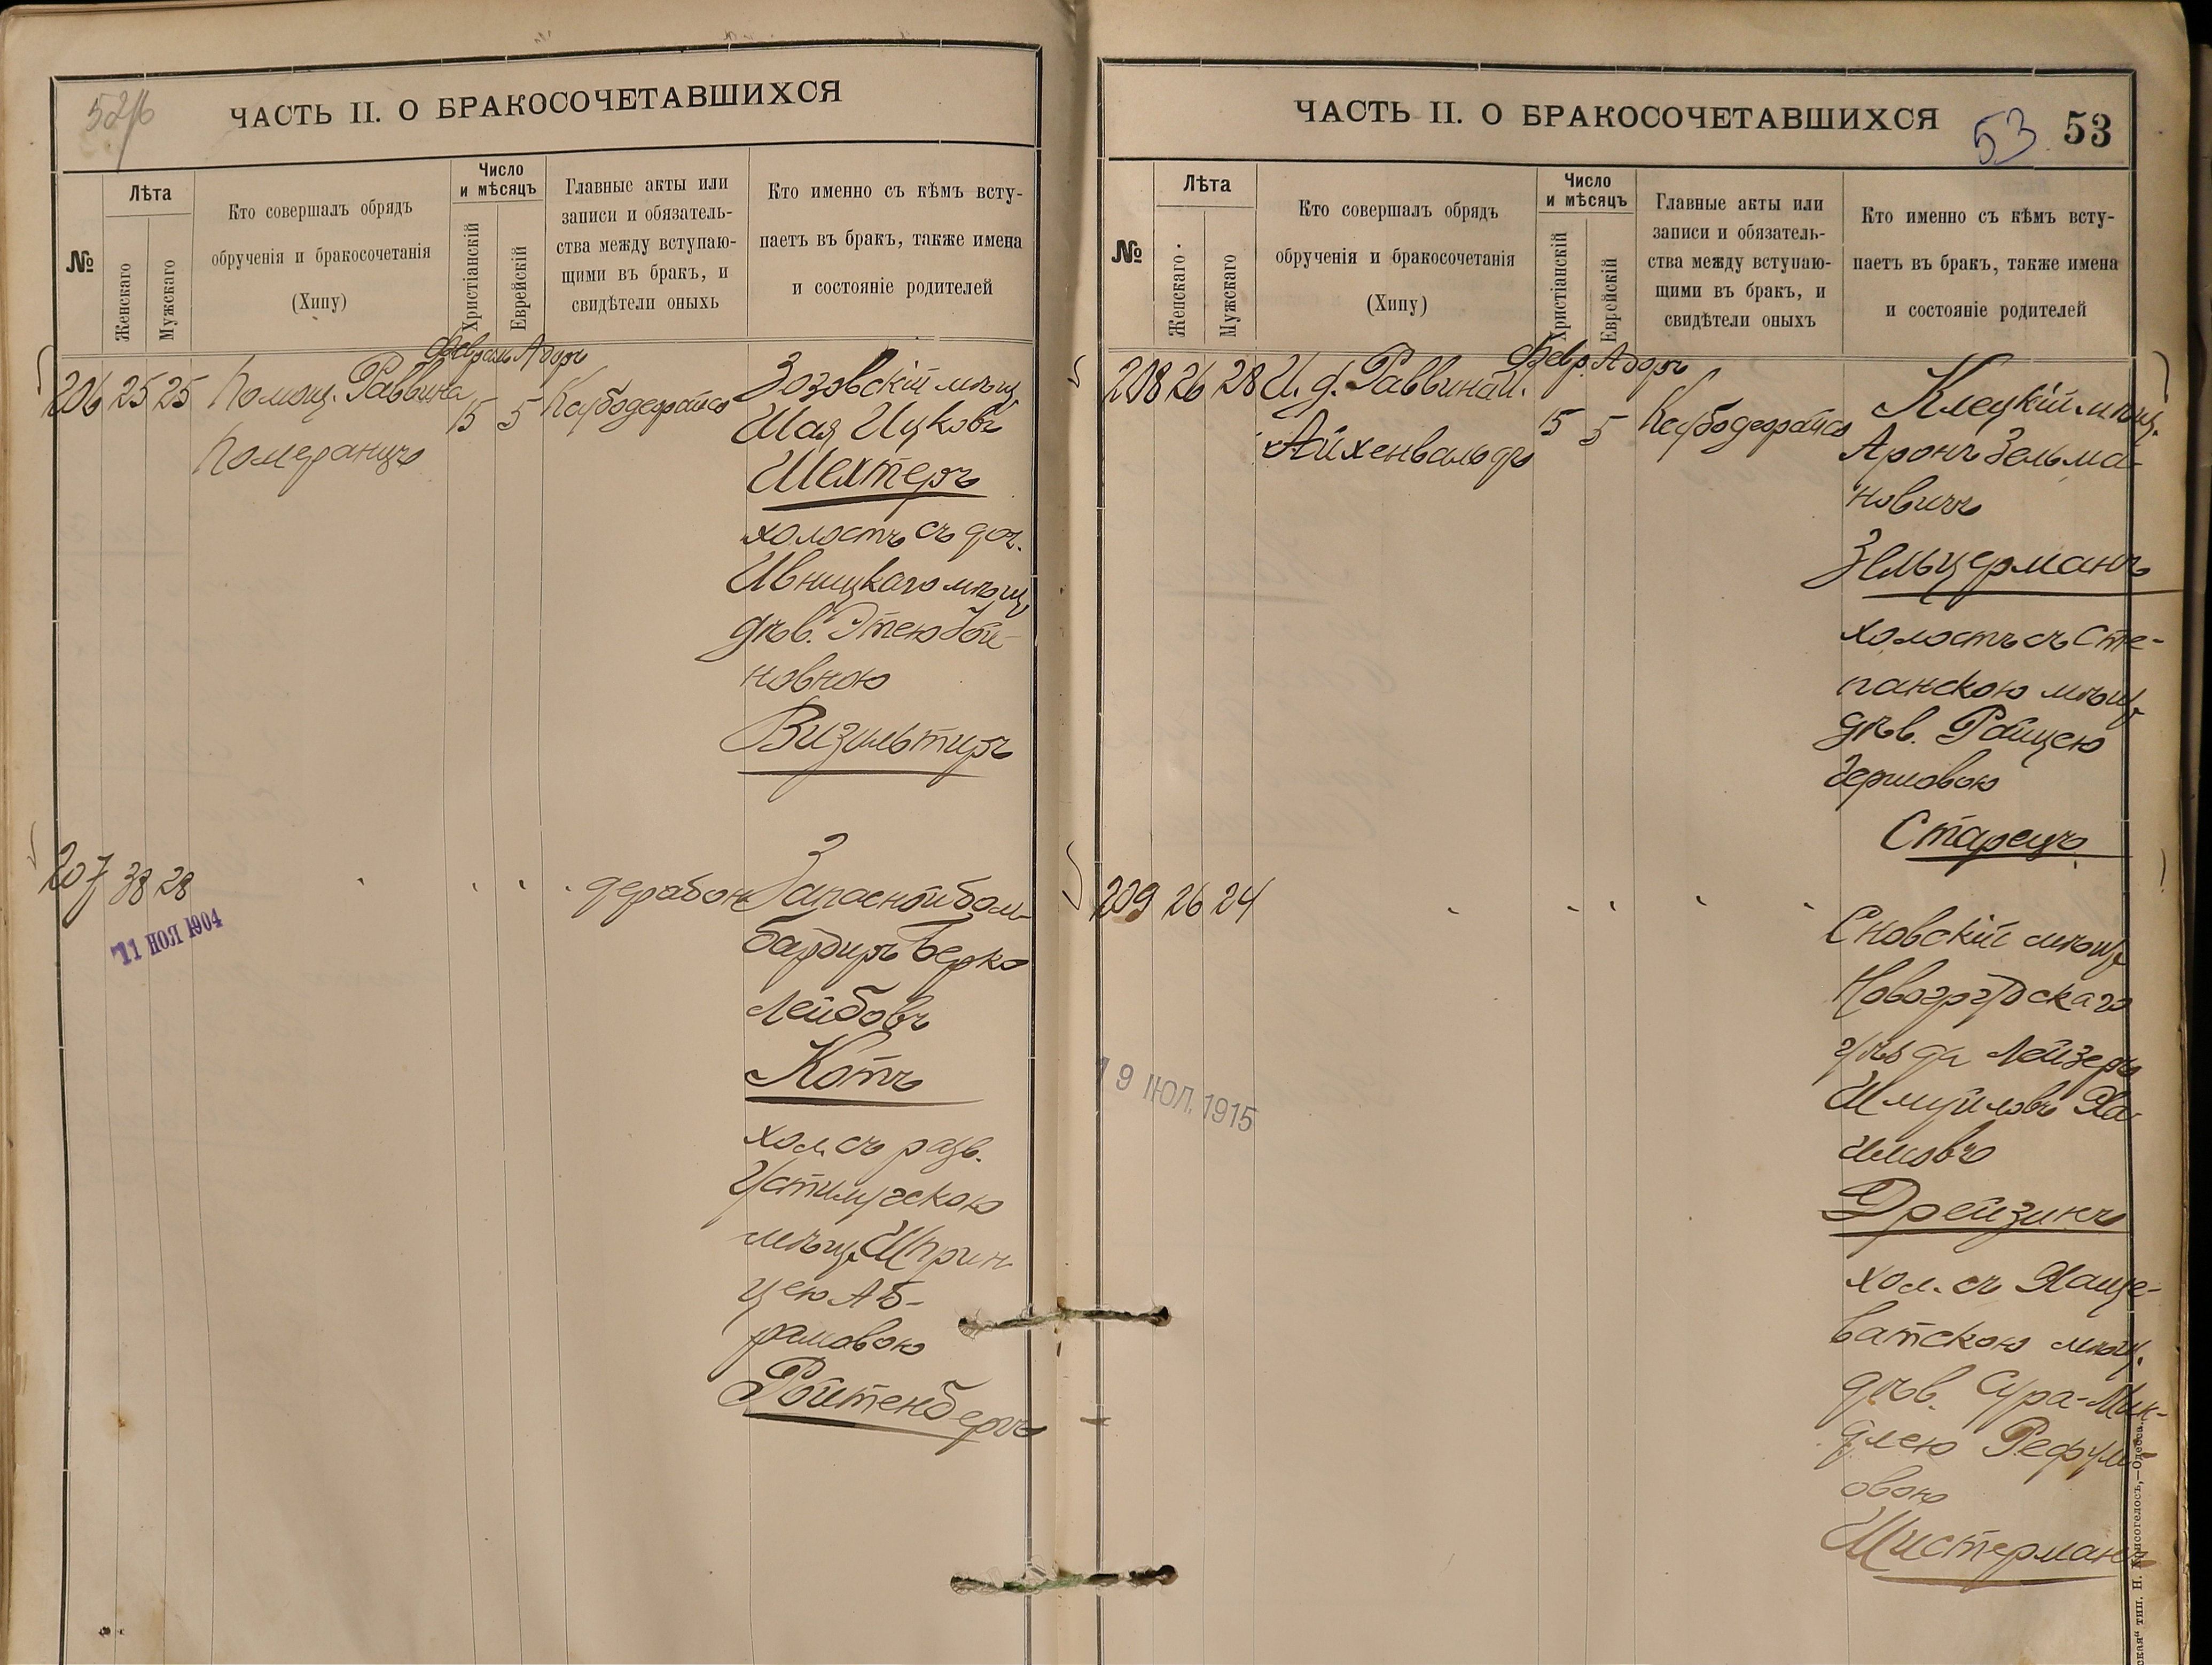 52/б
ЧАСТЬ II. О БРАКОСОЧЕТАВШИХСЯ
№
Лѣта
Женскаго
Мужскаго
Кто совершалъ обрядъ
обрученія и бракосочетанія
(Хипу)
Число
и мѣсяцъ
Христіанскій
Еврейскій
Главные акты или
записи и обязатель-
ства между вступаю-
щими въ бракъ, и
свидѣтели оныхъ
Кто именно съ кѣмъ всту-
паетъ въ бракъ, также имена
и состояніе родителей
Февраль Адаръ
206 25 25 Помощ. Раввина 15 5
Померанцъ
Зозовскій мѣщ.
Шая Ицковъ
Шехтеръ
холостъ съ доч.
Ивницкаго мѣщ.
дѣв. Этею
новною
Визильтиръ
207 38 28
11 НОЯ 1904
Запасной бом-
бардиръ Берко
Лейбовъ
Котъ
хол. съ разв.
Устилугскою
мѣщ. Шприн
цею Аб-
рамовою
Ройтенбергъ
ЧАСТЬ II. О БРАКОСОЧЕТАВШИХСЯ
53 53
№
Лѣта
Женскаго
Мужскаго
Кто совершалъ обрядъ
обрученія и бракосочетанія
(Хипу)
Число
и мѣсяцъ
Христіанскій
Еврейскій
Главные акты или
записи и обязатель-
ства между вступаю-
щими въ бракъ, и
свидѣтели оныхъ
Кто именно съ кѣмъ всту-
паетъ въ бракъ, также имена
и состояніе родителей
Февр. Адаръ
208 26 28 И. д. Раввина 15 5
Айхенвальдъ
Клецкій мѣщ.
Аронъ Зельма-
новичъ
Зельцерманъ
холостъ съ Сте-
панскою мѣщ.
дѣв. Райцею
Гершовою
Старецъ
209 26 24
19 ІЮЛ. 1915
Сновскій мѣщ.
Новогрдскаго
уѣзда Лейзеръ
Шмуйловъ Ха-
имовъ
Дрейзинъ
хол. съ Хаще-
ватскою мѣщ.
дѣв. Сура-Мин-
длею
овою
Шистерманъ
тип. Н. Хрисогелосъ,—Одесса.